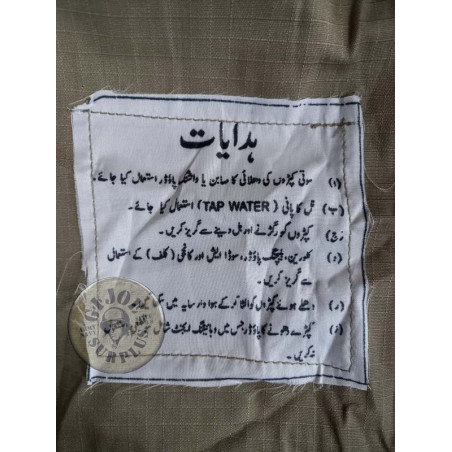 ہدایات
(ا) سوتی کپڑوں کی دھلائی کا صابن یا واشنگ پاؤڈر استعمال کیا جائے۔
(ب) نل کا پانی (TAP WATER) استعمال کیا جائے۔
(ج) کپڑوں کو رگڑنے اور بل دینے سے گریز کریں۔
(د) کلورین، بلیچنگ پاؤڈر، سوڈا ایش اور کانجی (کلف) کے استعمال
سے گریز کریں۔
(ر) دھلے ہوئے کپڑوں کو الٹا کر کے ہوا دار سایہ میں
(ڈ) کپڑے دھونے کا پاؤڈر جس میں وائیٹننگ ایجنٹ شامل
نہ کریں۔
G.I. JOE'S
SURPLUS